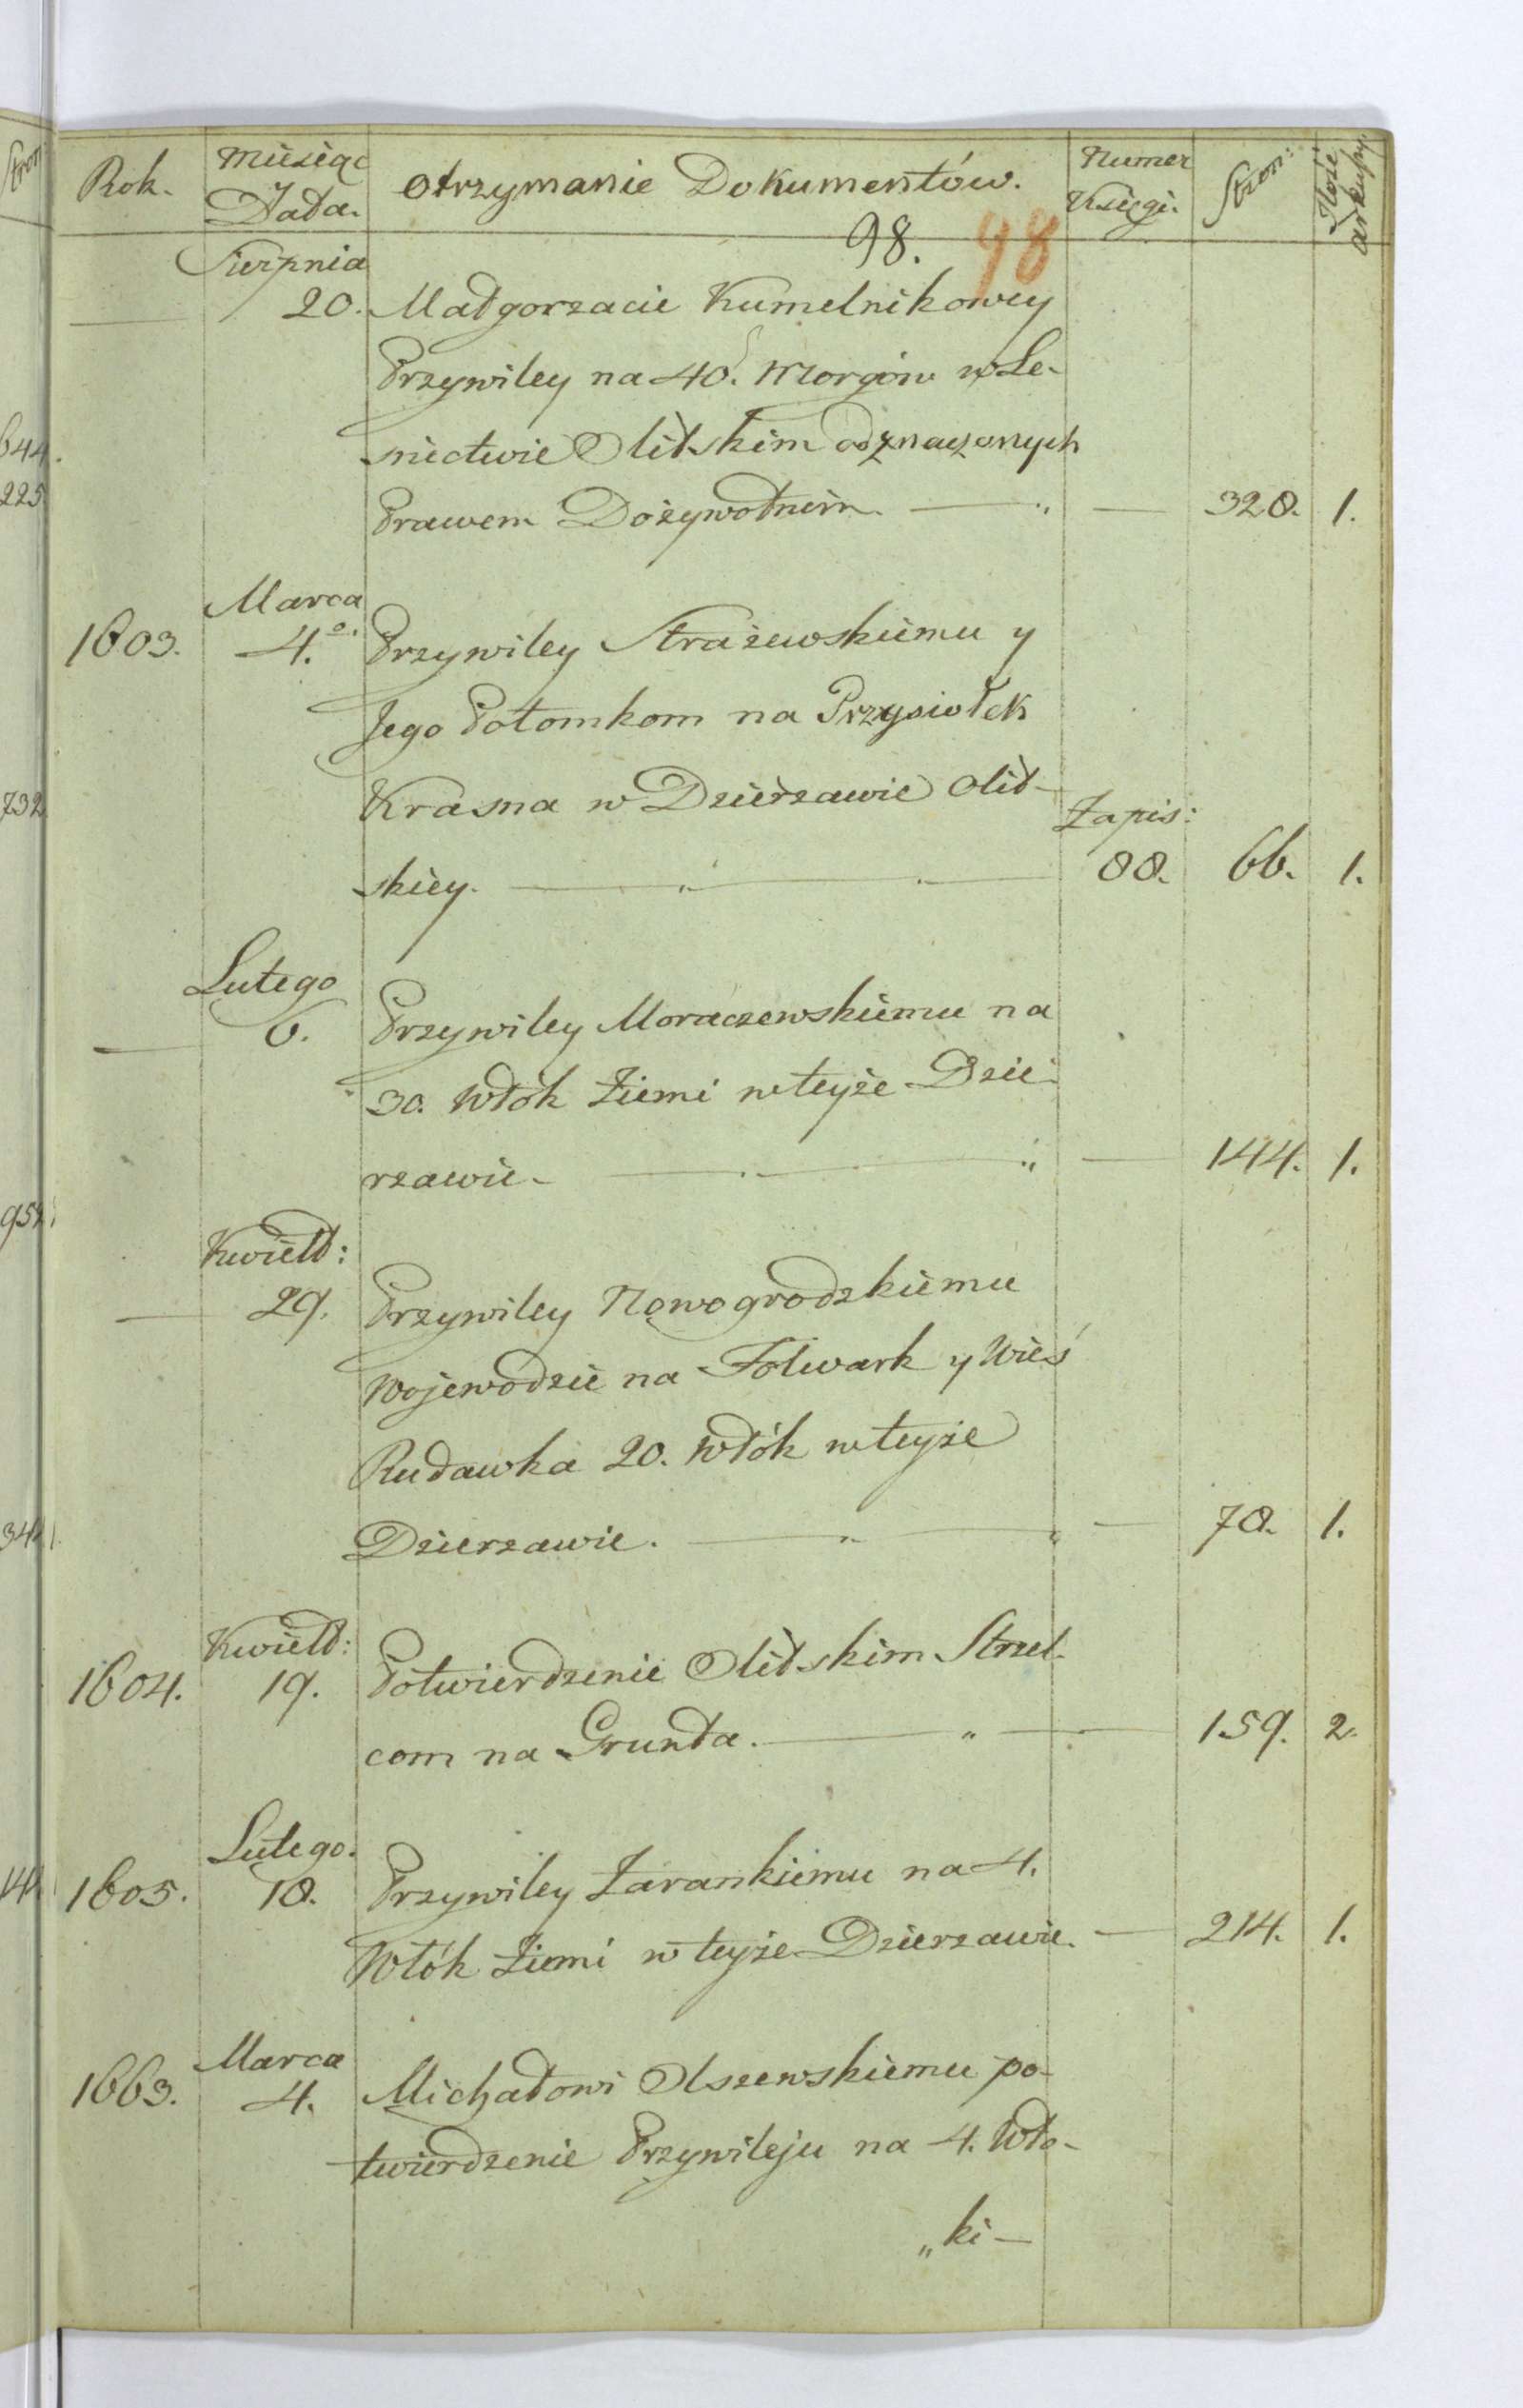 Rok. Miesiąc Data. Otrzymanie Dokumentów. Numer Księgi. Stron: Ilość arkuszy.
98. 98
Sierpnia
20. Małgorzacie Kumelnikowey
Przywiley na 40. Morgów w Le-
snictwie Olitskim odznaczonych
Prawem Dożywotnim. — 328. 1.
Marca
1603. 4. Przywiley Strażewskiemu y
Jego Potomkom na Przysiołek
Krasna w Dzierżawie Olit-
Zapis:
skiey. — 88. 66. 1.
Lutego
— 6. Przywiley Moraczewskiemu na
30. Włók Ziemi w teyże Dzie-
rzawie — 144. 1.
Kwiett:
— 29. Przywiley Nowogrodzkiemu
Wojewodzie na Folwark y Wieś
Rudawka 20. Włók w teyże
Dzierzawie. — 78. 1.
Kwiett:
1604. 19. Potwierdzenie Olitskim Strzel-
com na Grunta. — 159. 2.
Lutego.
1605. 18. Przywiley Zarankiemu na 4.
Włók Ziemi w teyże Dzierzawie. — 214. 1.
Marca
1663. 4. Michałowi Olszewskiemu po-
twierdzenie Przywileju na 4. Wło-
„ki—